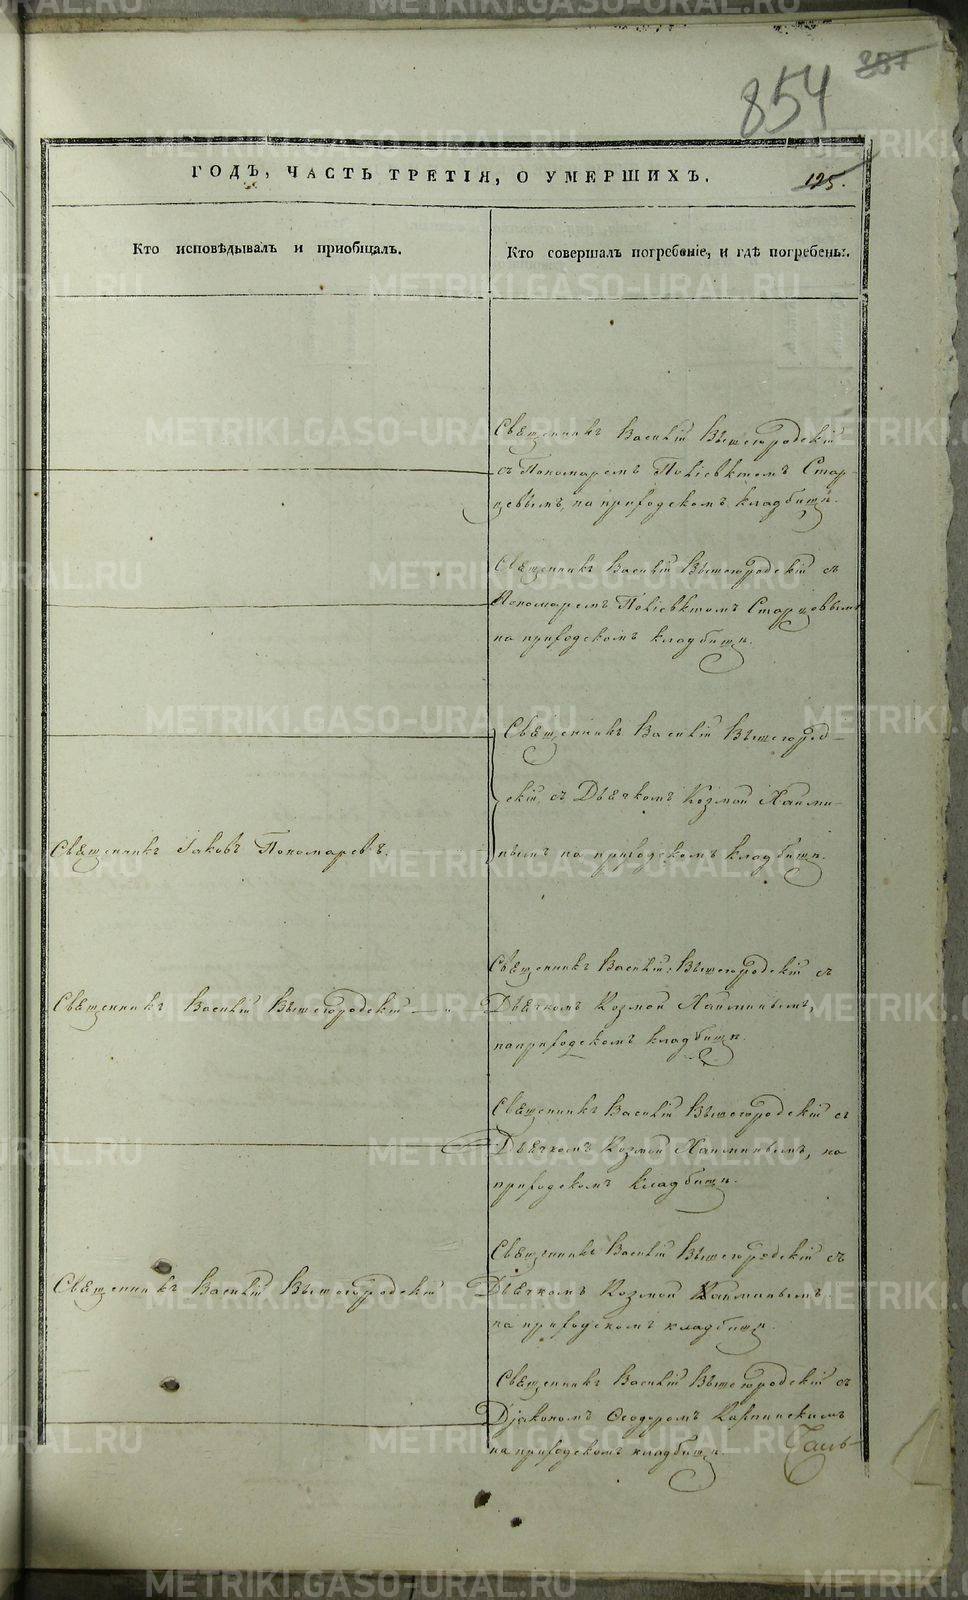 854
337
ГОДЪ, ЧАСТЬ ТРЕТІЯ, О УМЕРШИХЪ.
125.
Кто исповѣдывалъ и приобщалъ.
Кто совершалъ погребеніе, и гдѣ погребены.
Священникъ Василій Вышегородскій
съ Пономаремъ Поліевктомъ Стар-
цевымъ, на приходскомъ кладбищѣ.
Священникъ Василій Вышегородскій съ
Пономаремъ Поліевктомъ Старцовымъ
на приходскомъ кладбищѣ.
Священникъ Василій Вышегород-
скій, съ Дьячкомъ Козмой Хаими-
нымъ на приходскомъ кладбищѣ.
Священникъ Іаковъ Пономаревъ.
Священникъ Василій Вышегородскій съ
Священникъ Василій Вышегородскій
Дьячкомъ Козмой Хаиминымъ,
на приходскомъ кладбищѣ.
Священникъ Василій Вышегородскій съ
Дьячкомъ Козмой Хаиминымъ, на
приходскомъ кладбищѣ.
Священникъ Василій Вышегородскій съ
Священникъ Василій Вышегородскій
Дьячкомъ Козмой Хаиминымъ
на приходскомъ кладбищѣ.
Священникъ Василій Вышегородскій съ
Діакономъ Ѳеодоромъ Карпинскимъ
на приходскомъ кладбищѣ.
METRIKI.GASO-URAL.RU